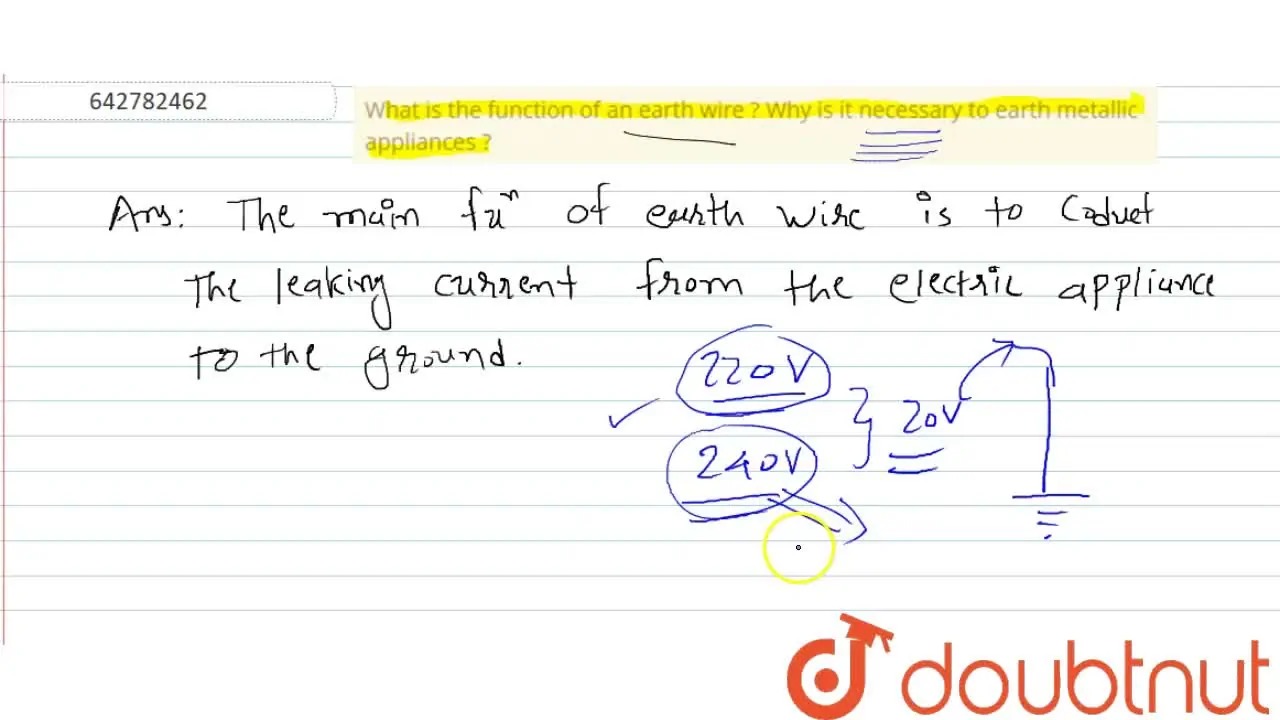 642782462
What is the function of an earth wire ? Why is it necessary to earth metallic
appliances ?
Ans: The main fuⁿ of earth wire is to Coduct
The leaking current from the electric appliance
to the ground.
220V
20V
240V
doubtnut